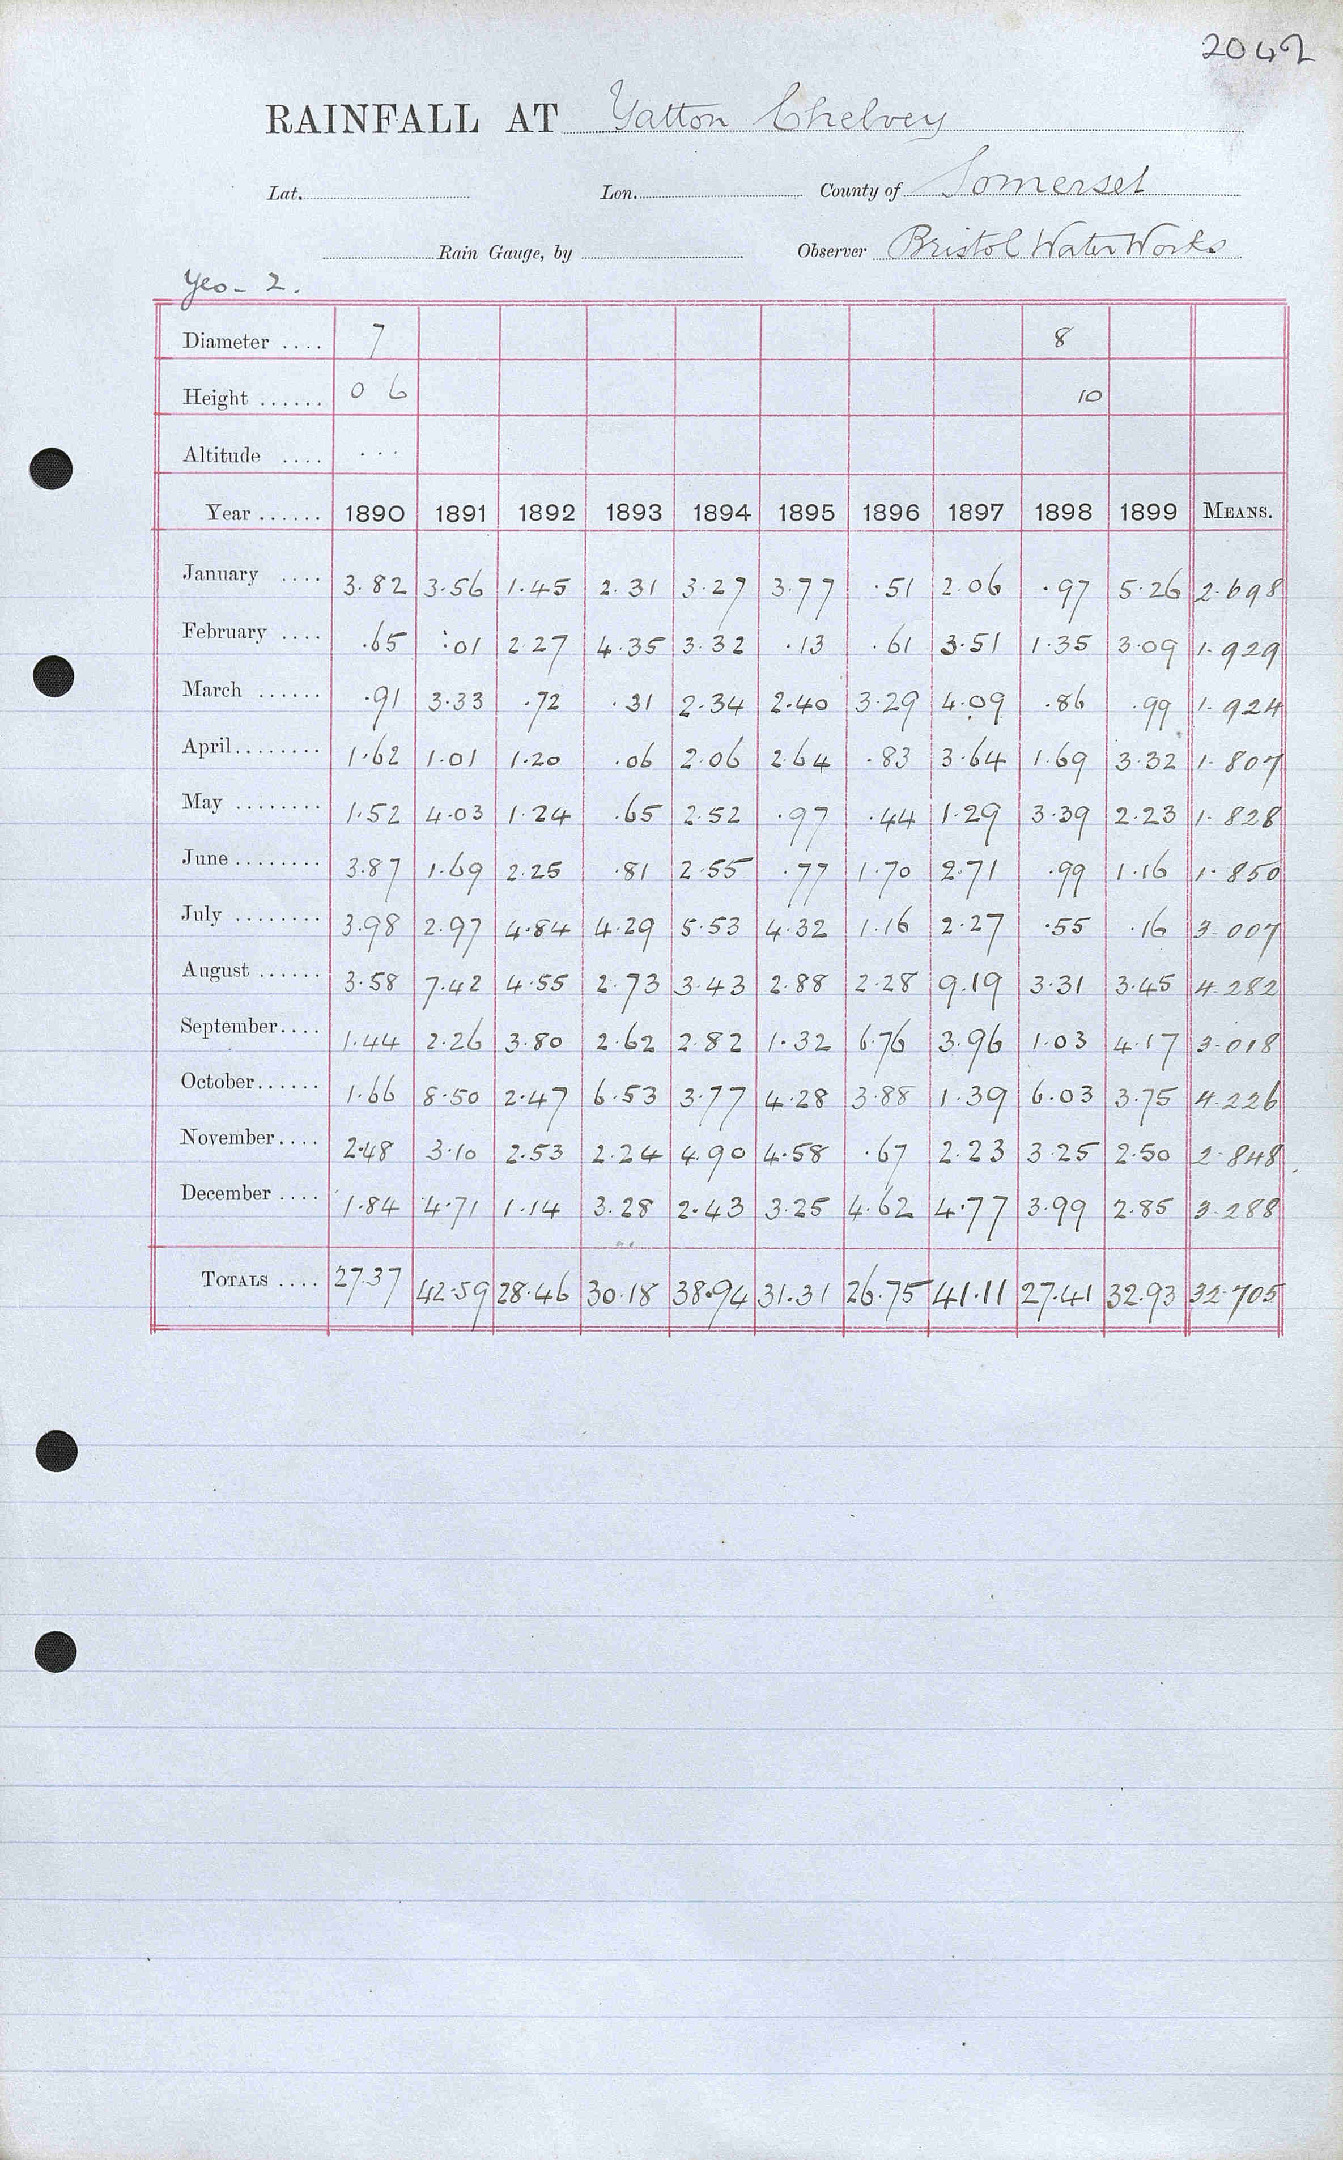 2042
RAINFALL AT Yatton Chelvey
Lat. Lon. County of Somerset
Rain Gauge, by Observer Bristol Water Works
Yeo - 2.
Diameter .... 7 8
Height ...... 0 6 10
Altitude .... ...
Year ...... 1890 1891 1892 1893 1894 1895 1896 1897 1898 1899 MEANS.
January .... 3.82 3.56 1.45 2.31 3.27 3.77 .51 2.06 .97 5.26 2.698
February .... .65 .01 2.27 4.35 3.32 .13 .61 3.51 1.35 3.09 1.929
March ...... .91 3.33 .72 .31 2.34 2.40 3.29 4.09 .86 .99 1.924
April ........ 1.62 1.01 1.20 .06 2.06 2.64 .83 3.64 1.69 3.32 1.807
May ........ 1.52 4.03 1.24 .65 2.52 .97 .44 1.29 3.39 2.23 1.828
June ........ 3.87 1.69 2.25 .81 2.55 .77 1.70 2.71 .99 1.16 1.850
July ........ 3.98 2.97 4.84 4.29 5.53 4.32 1.16 2.27 .55 .16 3.007
August ...... 3.58 7.42 4.55 2.73 3.43 2.88 2.28 9.19 3.31 3.45 4.282
September .... 1.44 2.26 3.80 2.62 2.82 1.32 6.76 3.96 1.03 4.17 3.018
October ...... 1.66 8.50 2.47 6.53 3.77 4.28 3.88 1.39 6.03 3.75 4.226
November .... 2.48 3.10 2.53 2.24 4.90 4.58 .67 2.23 3.25 2.50 2.848
December .... 1.84 4.71 1.14 3.28 2.43 3.25 4.62 4.77 3.99 2.85 3.288
TOTALS .... 27.37 42.59 28.46 30.18 38.94 31.31 26.75 41.11 27.41 32.93 32.705